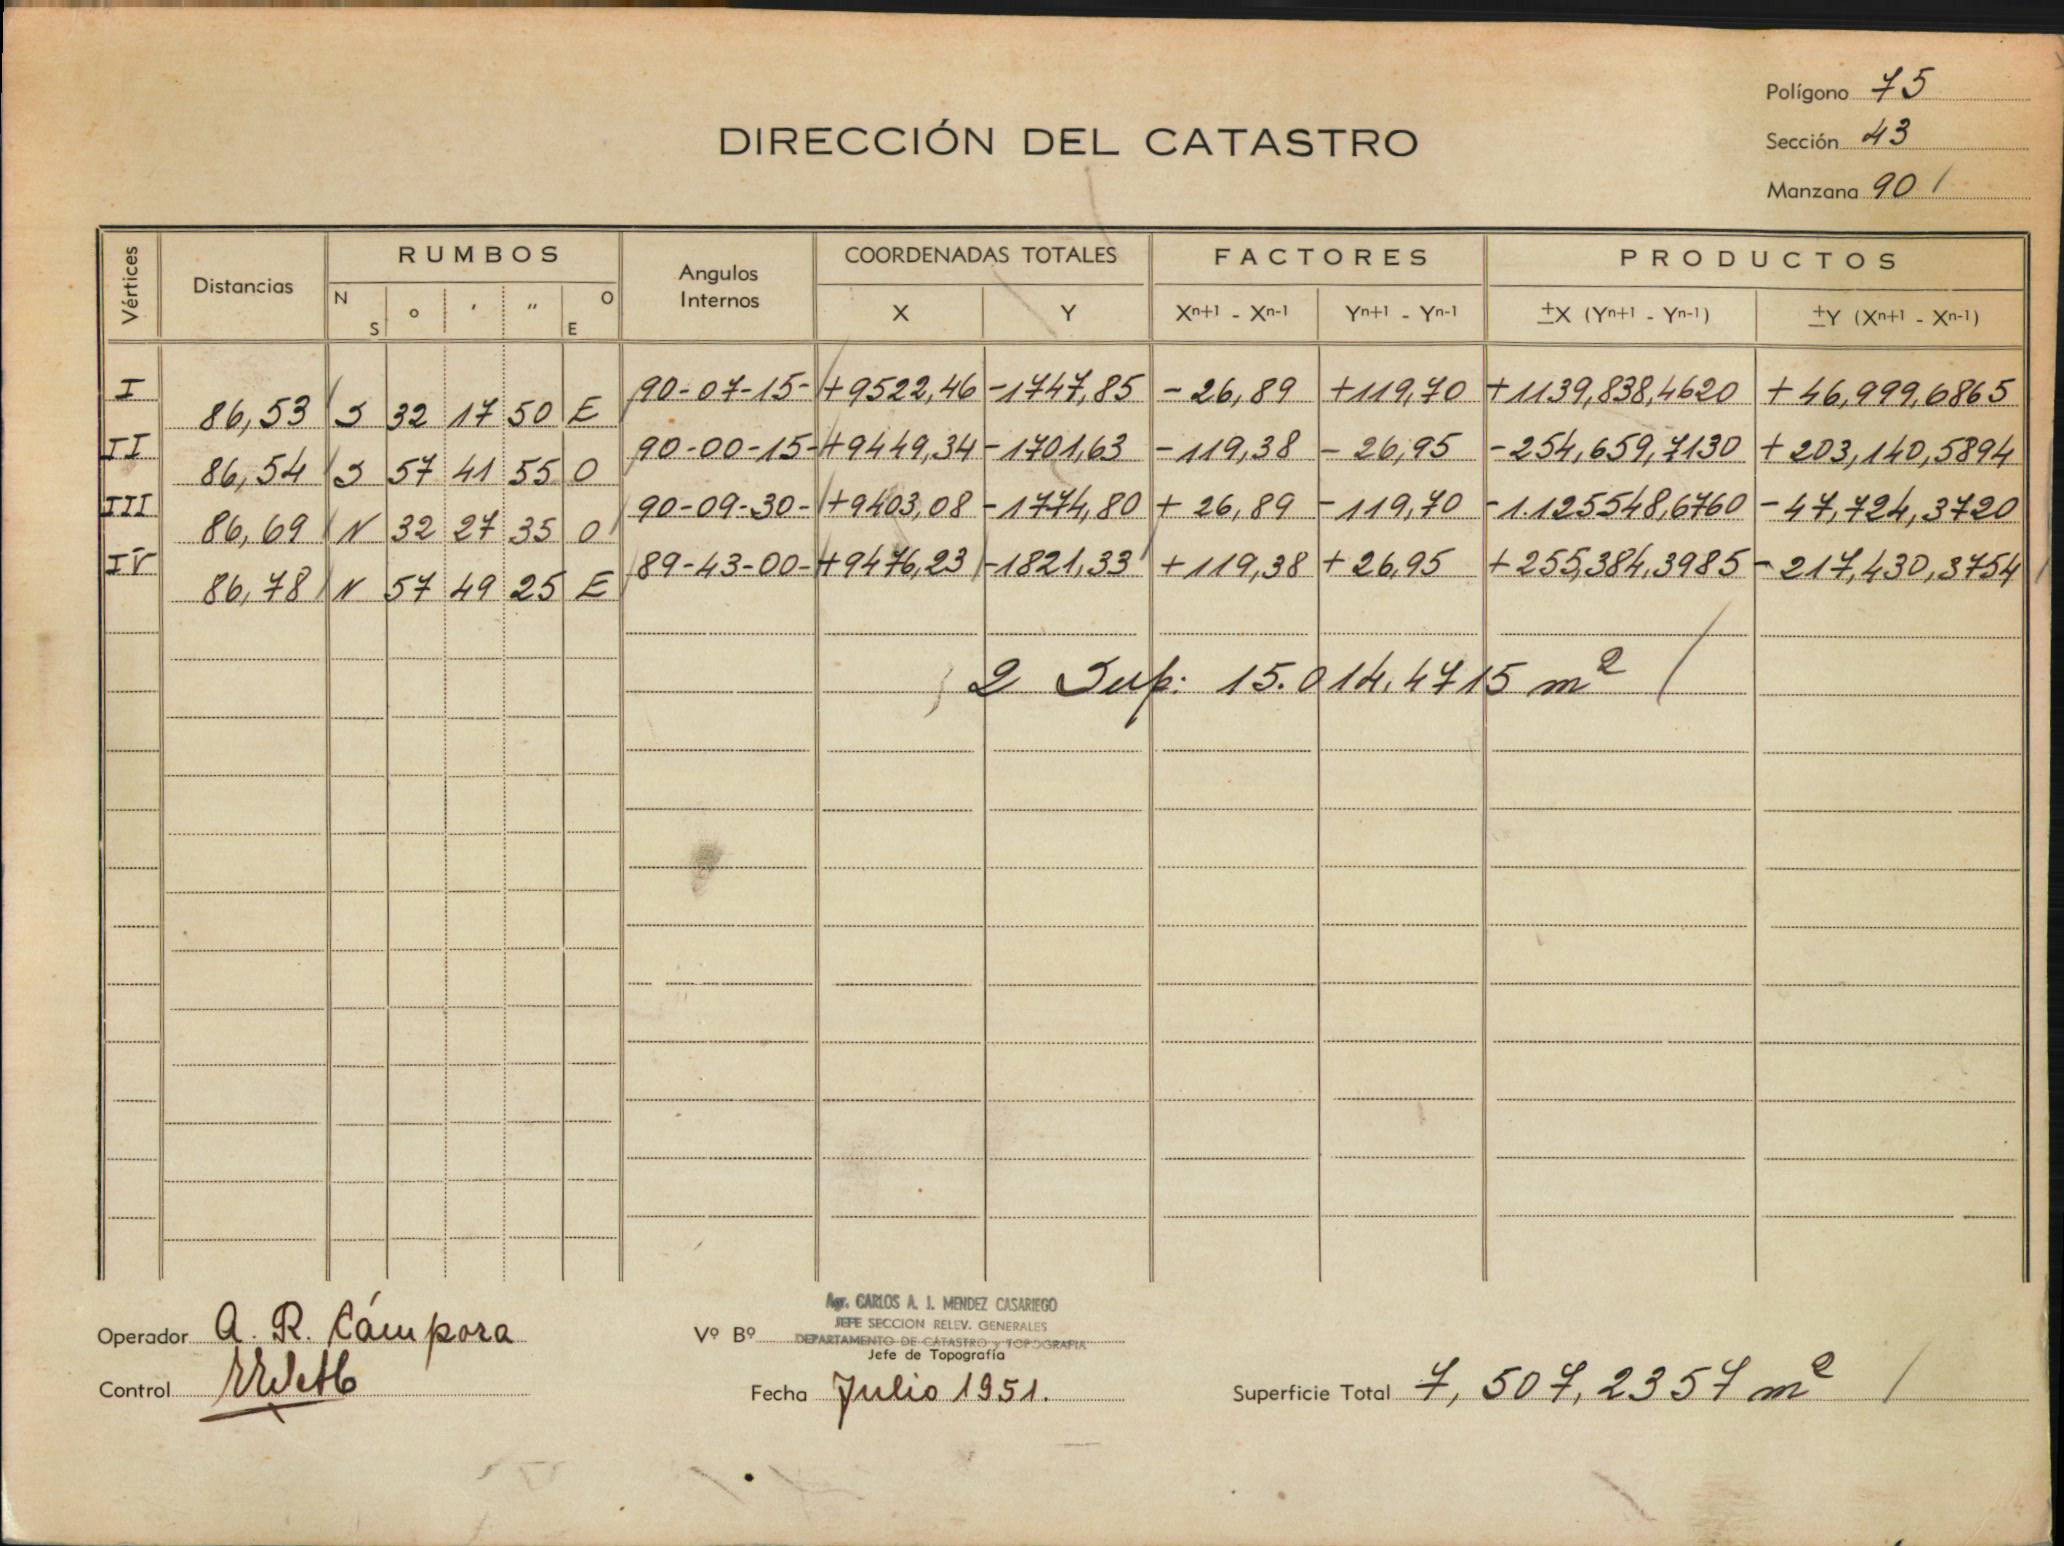 Polígono 75
DIRECCIÓN DEL CATASTRO
Sección 43
Manzana 90
Vértices Distancias RUMBOS Angulos Internos COORDENADAS TOTALES FACTORES PRODUCTOS
N S ° ' " O E X Y Xn+1 - Xn-1 Yn+1 - Yn-1 ±X (Yn+1 - Yn-1) ±Y (Xn+1 - Xn-1)
I 90-07-15- +9522,46 -1747,85 -26,89 +119,70 +1139,838,4620 +46,999,6865
86,53 S 32 17 50 E
II 90-00-15- +9449,34 -1701,63 -119,38 -26,95 -254,659,7130 +203,140,5894
86,54 S 57 41 55 O
III 90-09-30- +9403,08 -1774,80 +26,89 -119,70 -1.125548,6760 -47,724,3720
86,69 N 32 27 35 O
IV 89-43-00- +9476,23 -1821,33 +119,38 +26,95 +255,384,3985 -217,430,3754
86,78 N 57 49 25 E
2 Sup: 15.014,4715 m²
Agr. CARLOS A. J. MENDEZ CASARIEGO
JEFE SECCION RELEV. GENERALES
Operador A. R. Cámpora Vº Bº DEPARTAMENTO DE CATASTRO y TOPOGRAFIA
Jefe de Topografía
Control Fecha Julio 1951. Superficie Total 7,507,2357 m²